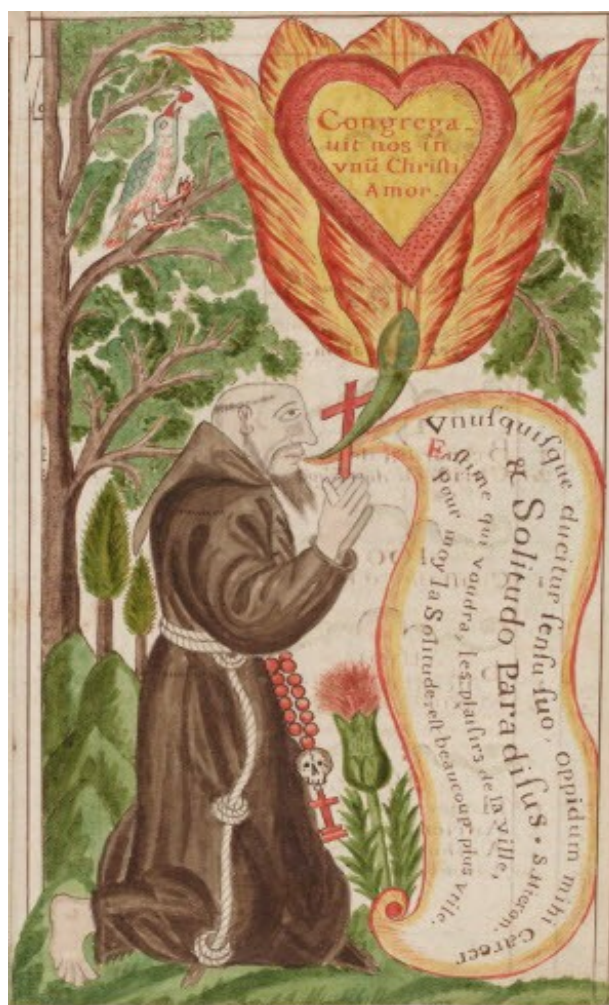 Congrega-
uit nos in
vnũ Chriſti
Amor.
Vnuſquiſque ducitur ſenſu ſuo, oppidum mihi Carcer
& Solitudo Paradiſus. S. Hieron.
Eſtime qui voudra, les plaiſirs de la ville,
Pour moy la Solitude, eſt beaucoup plus vtile.